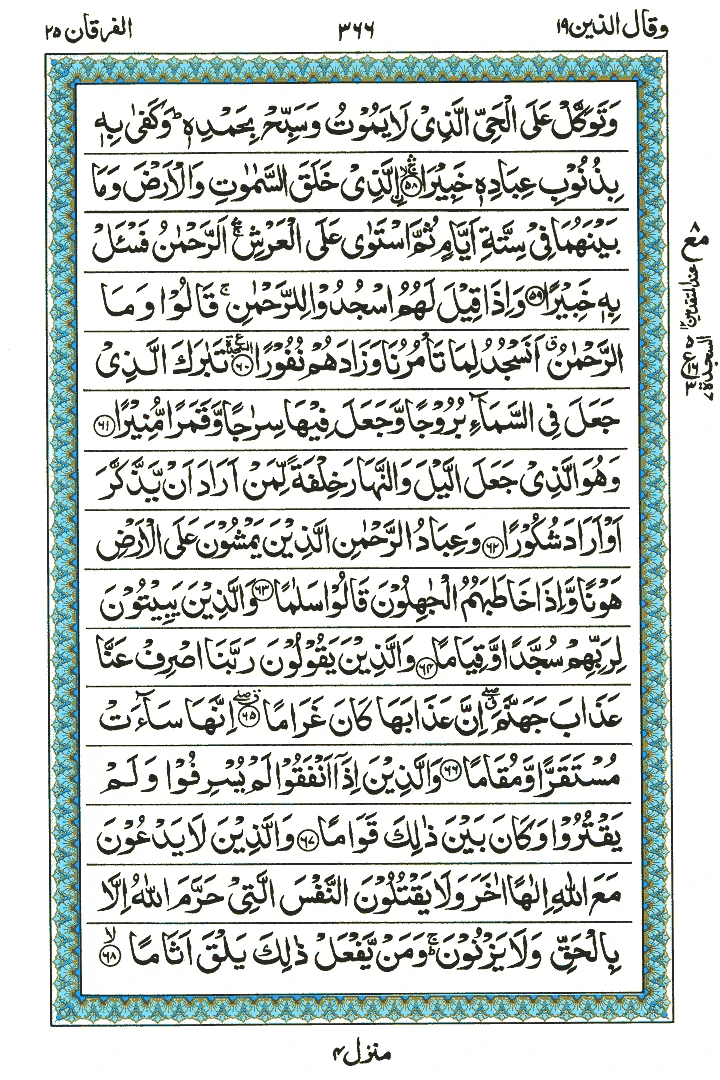 وقال الذين ١٩ ٣٦٦ الفرقان ٢٥
وَتَوَكَّلْ عَلَى الْحَيِّ الَّذِىْ لَا يَمُوْتُ وَسَبِّحْ بِحَمْدِهٖ ؕ وَكَفٰى بِهٖ
بِذُنُوْبِ عِبَادِهٖ خَبِيْرَا ۛۚ ۙ ﴿٥٨﴾ الَّذِىْ خَلَقَ السَّمٰوٰتِ وَالْاَرْضَ وَمَا
بَيْنَهُمَا فِىْ سِتَّةِ اَيَّامٍ ثُمَّ اسْتَوٰى عَلَى الْعَرْشِ ۛۚ اَلرَّحْمٰنُ فَسْـَٔلْ
بِهٖ خَبِيْرًا ﴿٥٩﴾ وَاِذَا قِيْلَ لَهُمُ اسْجُدُوْا لِلرَّحْمٰنِ ۚ قَالُوْا وَمَا
الرَّحْمٰنُ ۗ اَنَسْجُدُ لِمَا تَاْمُرُنَا وَزَادَهُمْ نُفُوْرًا ﴿٦٠﴾ تَبٰرَكَ الَّذِىْ
جَعَلَ فِى السَّمَآءِ بُرُوْجًا وَّجَعَلَ فِيْهَا سِرٰجًا وَّقَمَرًا مُّنِيْرًا ﴿٦١﴾
وَهُوَ الَّذِىْ جَعَلَ الَّيْلَ وَالنَّهَارَ خِلْفَةً لِّمَنْ اَرَادَ اَنْ يَّذَّكَّرَ
اَوْ اَرَادَ شُكُوْرًا ﴿٦٢﴾ وَعِبَادُ الرَّحْمٰنِ الَّذِيْنَ يَمْشُوْنَ عَلَى الْاَرْضِ
هَوْنًا وَّاِذَا خَاطَبَهُمُ الْجٰهِلُوْنَ قَالُوْا سَلٰمًا ﴿٦٣﴾ وَالَّذِيْنَ يَبِيْتُوْنَ
لِرَبِّهِمْ سُجَّدًا وَّقِيَامًا ﴿٦٤﴾ وَالَّذِيْنَ يَقُوْلُوْنَ رَبَّنَا اصْرِفْ عَنَّا
عَذَابَ جَهَنَّمَ ۖ اِنَّ عَذَابَهَا كَانَ غَرَامًا ﴿٦٥﴾ اِنَّهَا سَآءَتْ
مُسْتَقَرًّا وَّمُقَامًا ﴿٦٦﴾ وَالَّذِيْنَ اِذَاۤ اَنْفَقُوْا لَمْ يُسْرِفُوْا وَلَمْ
يَقْتُرُوْا وَكَانَ بَيْنَ ذٰلِكَ قَوَامًا ﴿٦٧﴾ وَالَّذِيْنَ لَا يَدْعُوْنَ
مَعَ اللّٰهِ اِلٰهًا اٰخَرَ وَلَا يَقْتُلُوْنَ النَّفْسَ الَّتِىْ حَرَّمَ اللّٰهُ اِلَّا
بِالْحَقِّ وَلَا يَزْنُوْنَ ۚ وَمَنْ يَّفْعَلْ ذٰلِكَ يَلْقَ اَثَامًا ۙ ﴿٦٨﴾
مع ٨
السجدة ٧
منزل ٤